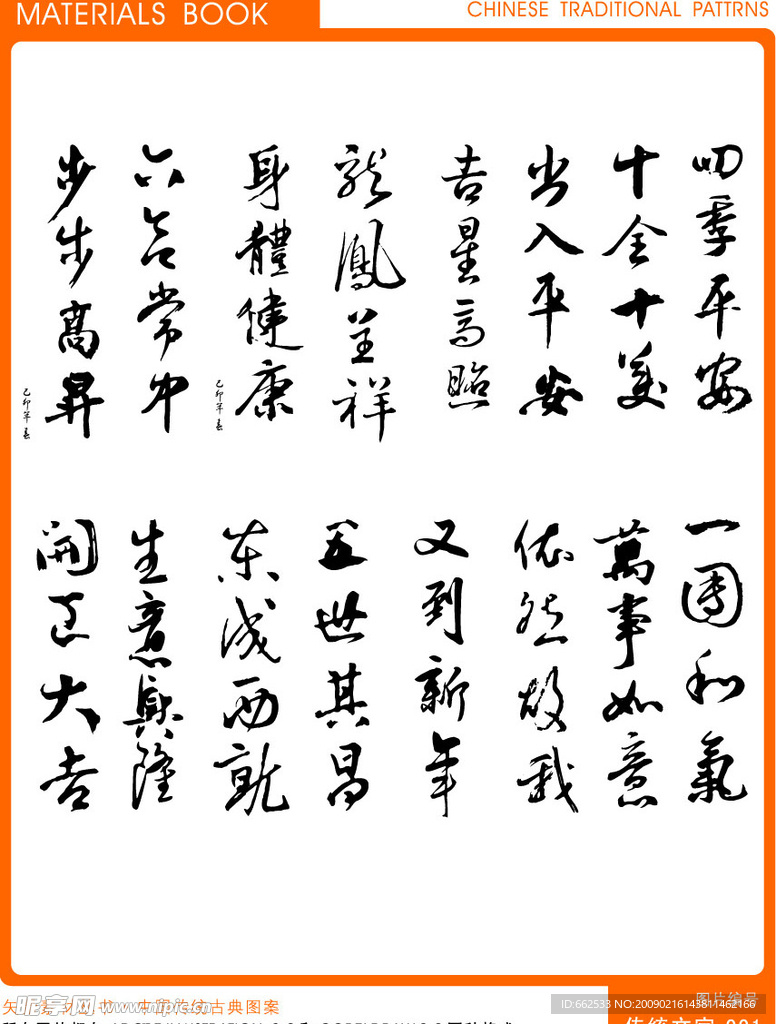 MATERIALS BOOK
CHINESE TRADITIONAL PATTRNS
四季平安
十全十美
出入平安
吉星高照
龍鳳呈祥
身體健康
己卯年春
六合常中
步步高昇
己卯年春
一團和氣
萬事如意
依然故我
又到新年
五世其昌
东成西就
生意興隆
開正大吉
昵享网 www.nipic.cn
传统古典图案
图片编号
ID:662533 NO:20090216143811462166